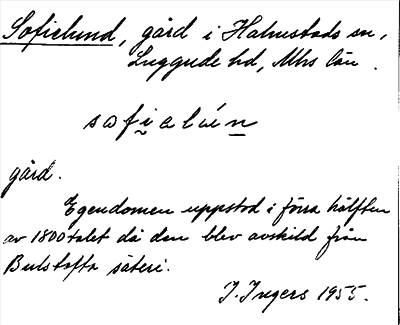 Sofielund, gård i Halmstads sn,
Luggude hd, Mhs län.
sofielún
gård.
Egendomen uppstod i förra hälften
av 1800talet då den blev avskild från
Bulstofta säteri.
I. Ingers 1955.